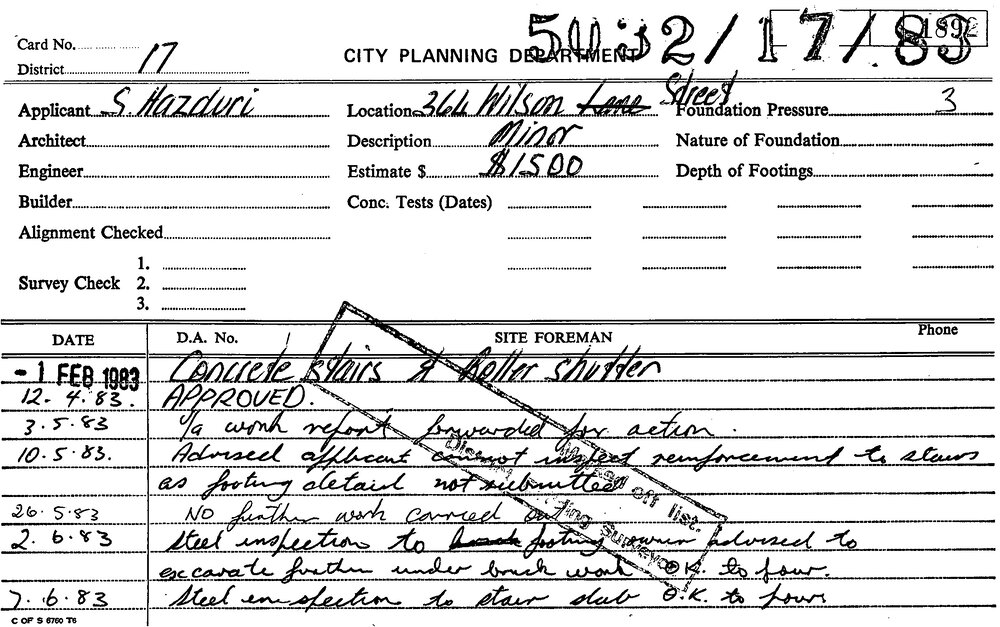 5032/17/83
1892
Card No.
District 17
CITY PLANNING DEPARTMENT
Applicant S. Hazduri
Location 366 Wilson Lane Street
Foundation Pressure 3
Architect
Description Minor
Nature of Foundation
Engineer
Estimate $ $1500
Depth of Footings
Builder
Conc. Tests (Dates)
Alignment Checked
Survey Check 1.
2.
3.
DATE D.A. No. SITE FOREMAN Phone
- 1 FEB 1983 Concrete stairs & Roller shutter
12. 4. 83. APPROVED.
3. 5. 83 U/a work report forwarded for action.
10. 5. 83. Advised applicant cannot inspect reinforcement to stairs
as footing detail not submitted
26. 5. 83 NO further work carried out
2. 6. 83 Steel inspection to footing owner advised to
excavate further under brick work O.K. to pour.
7. 6. 83 Steel inspection to stair slab O.K. to pour
off list.
Surveyor
C OF S 6760 T6